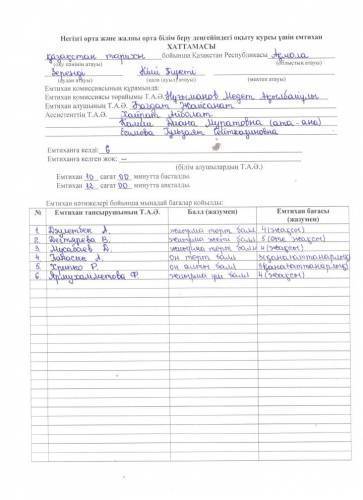 Негізгі орта және жалпы орта білім беру деңгейіндегі оқыту курсы үшін емтихан
ХАТТАМАСЫ
қазақстан тарихы бойынша Қазақстан Республикасы Ақмола
(оқу пәнінің атауы) (облыстың атауы)
Зеренді Кіші Түкті
(аудан атауы) (қала (ауыл) атауы) (мектеп атауы)
Емтихан комиссиясының құрамында:
Емтихан комиссиясы төрайымы Т.А.Ә. Нұғыманов Медет
Емтихан алушының Т.А.Ә. Ғаздат Жайсанат
Ассистенттің Т.А.Ә. Хайрат Айболат
Диана Муратовна (ата-ана)
Гульзат
Емтиханға келді: 6
Емтиханға келген жоқ: –
(білім алушылардың Т.А.Ә.)
Емтихан 10 сағат 00 минутта басталды.
Емтихан 12 сағат 00 минутта аяқталды.
Емтихан нәтижелері бойынша мынадай бағалар қойылды:
№ Емтихан тапсырушының Т.А.Ә. Балл (жазумен) Емтихан бағасы (жазумен)
1 Дәулетбек А. жиырма төрт балл 4 (жақсы)
2 Дегтярева В. жиырма жеті балл 5 (өте жақсы)
3 Мусабаев Д. жиырма төрт балл 4 (жақсы)
4 А. он төрт балл 3 (қанағаттанарлық)
5 Хрипко Р. он алты балл 3 (қанағаттанарлық)
6 Ярмухамметова Ф. жиырма үш балл 4 (жақсы)